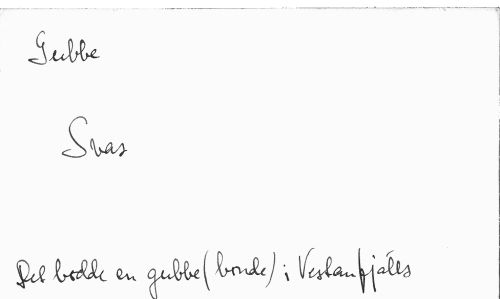 Gubbe
Svas
Det bodde en gubbe (bonde) i Vestanfjälls